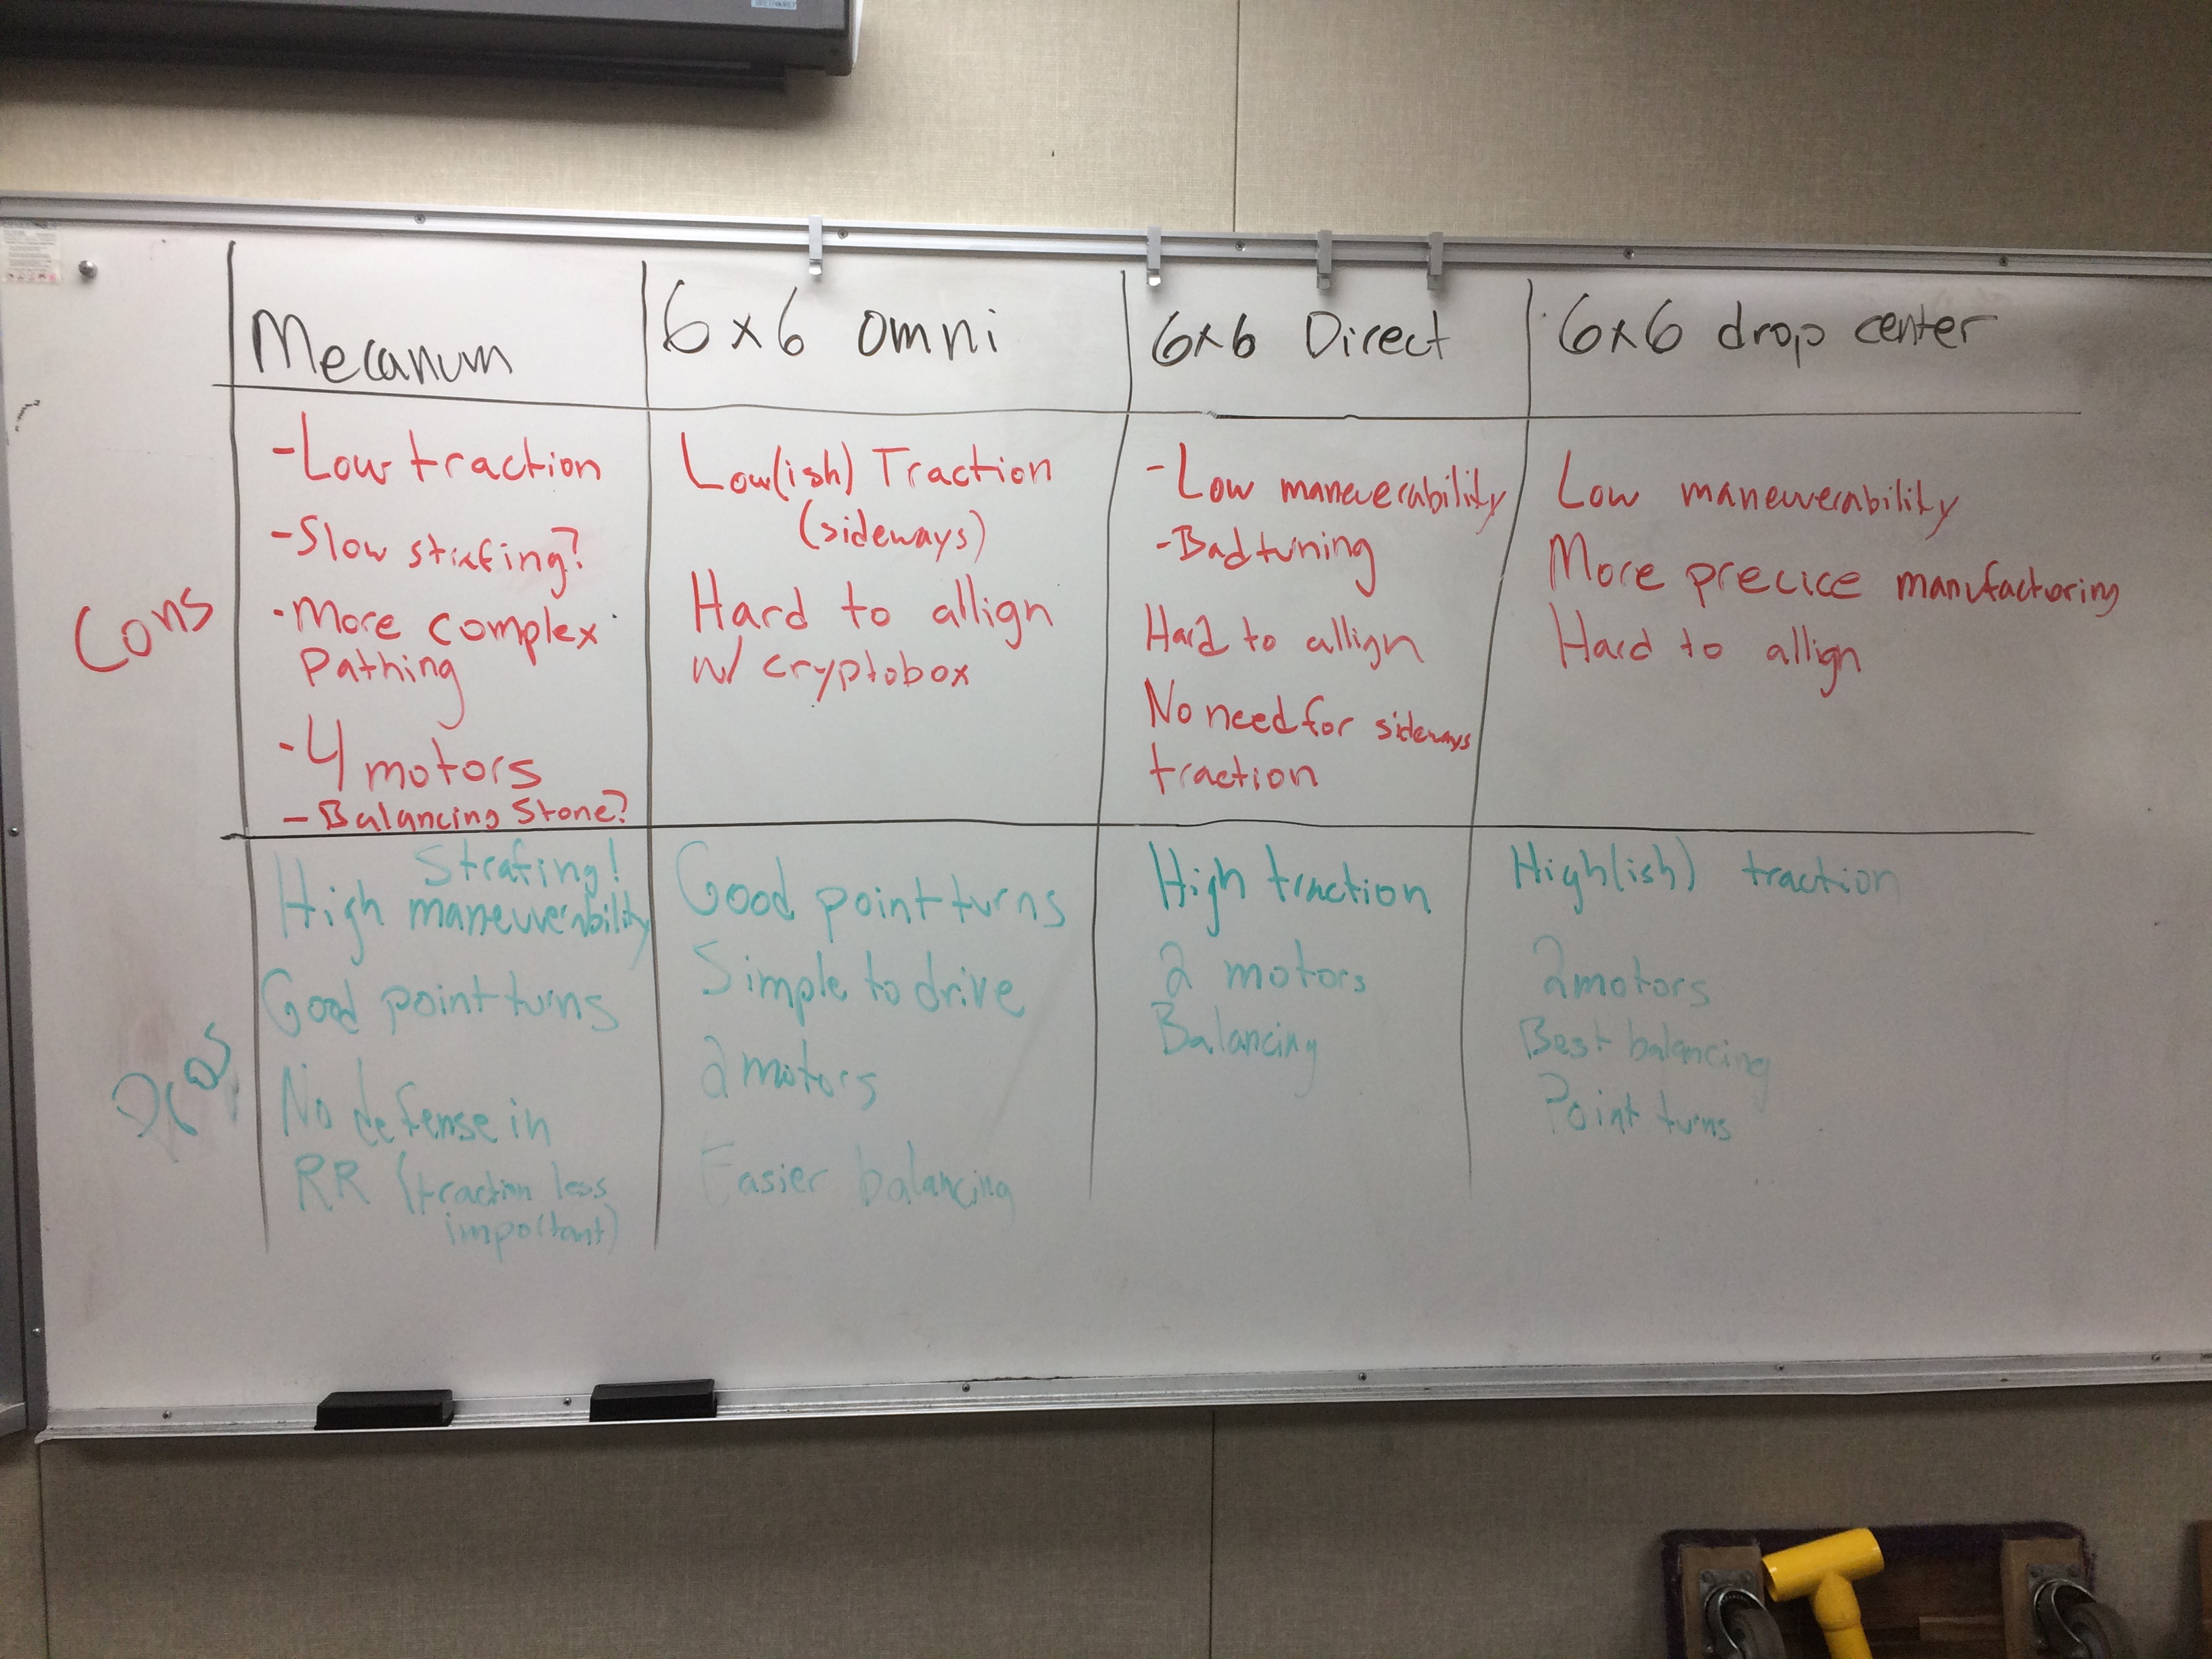 Mecanum
6x6 omni
6x6 Direct
6x6 drop center
Cons
-Low traction
-Slow strafing?
-More complex
Pathing
-4 motors
-Balancing Stone?
Low(ish) Traction
(sideways)
Hard to allign
w/ cryptobox
-Low maneuverability
-Bad tuning
Hard to allign
No need for sideways
traction
Low maneuverability
More precice manufactoring
Hard to allign
Pros
Strafing!
High maneuverability
Good point turns
No defense in
RR (traction less
important)
Good point turns
Simple to drive
2 motors
Easier balancing
High traction
2 motors
Balancing
High(ish) traction
2 motors
Best balancing
Point turns